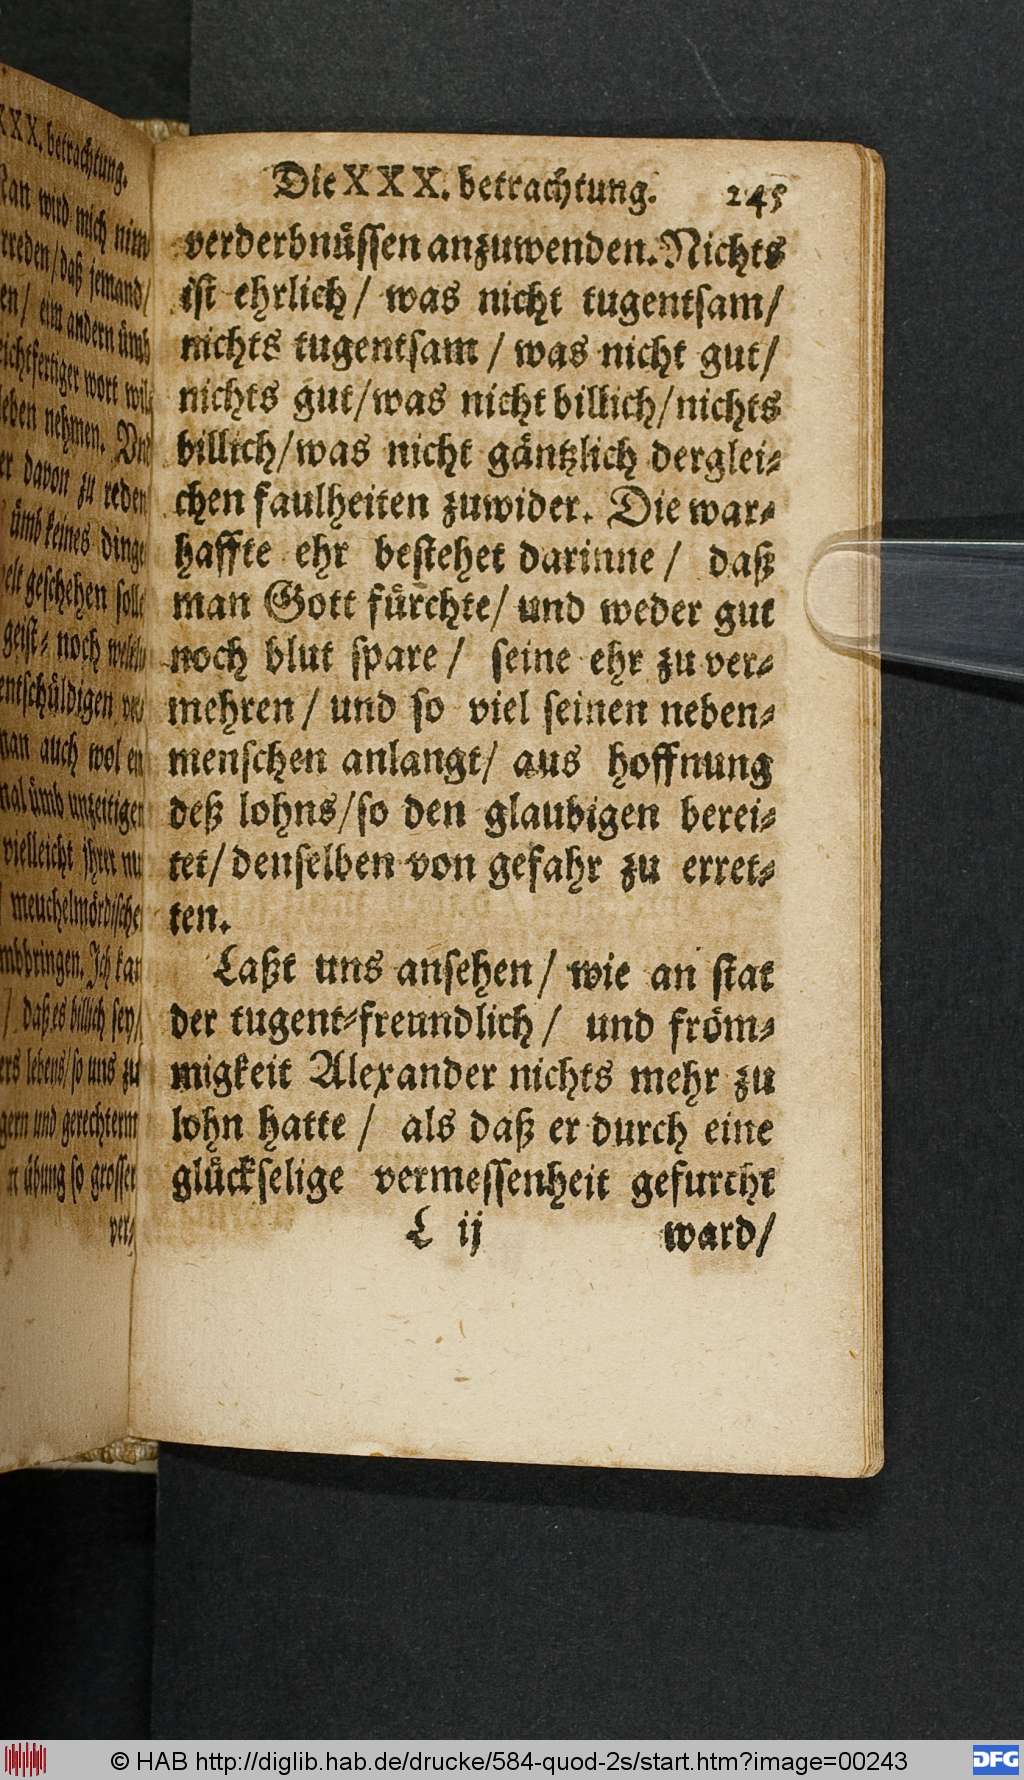 XXX. betrachtung.
wird mich
daß jemand/
ein andern ümb
wort
nehmen.
davon zu reden
ümb keines dinge
geschehen
geist- noch
entschüldigen
auch wol
ümb unzeitigen
vielleicht ihrer
meuchelmördische
Ich kan
/ daß es billich sey/
lebens/ so uns zu
und
übung so grosser
ver-
Die XXX. betrachtung. 245
verderbnüssen anzuwenden. Nichts
ist ehrlich/ was nicht tugentsam/
nichts tugentsam / was nicht gut/
nichts gut/was nicht billich/nichts
billich/was nicht gäntzlich derglei-
chen faulheiten zuwider. Die war-
haffte ehr bestehet darinne / daß
man Gott fürchte/ und weder gut
noch blut spare / seine ehr zu ver-
mehren / und so viel seinen neben-
menschen anlangt/ aus hoffnung
deß lohns/so den glaubigen berei-
tet/ denselben von gefahr zu erret-
ten.
Laßt uns ansehen / wie an stat
der tugent-freundlich / und fröm-
migkeit Alexander nichts mehr zu
lohn hatte / als daß er durch eine
glückselige vermessenheit gefurcht
L ij ward/
© HAB http://diglib.hab.de/drucke/584-quod-2s/start.htm?image=00243
DFG